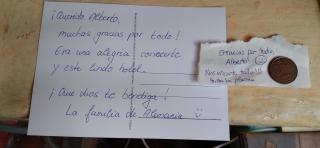 ¡Querido Alberto,
muchas gracias por todo!
Era una alegria conocerte
y este lindo hotel.
¡Que dios te bendiga!
La familia de Alemania
Gracias por todo,
Alberto!